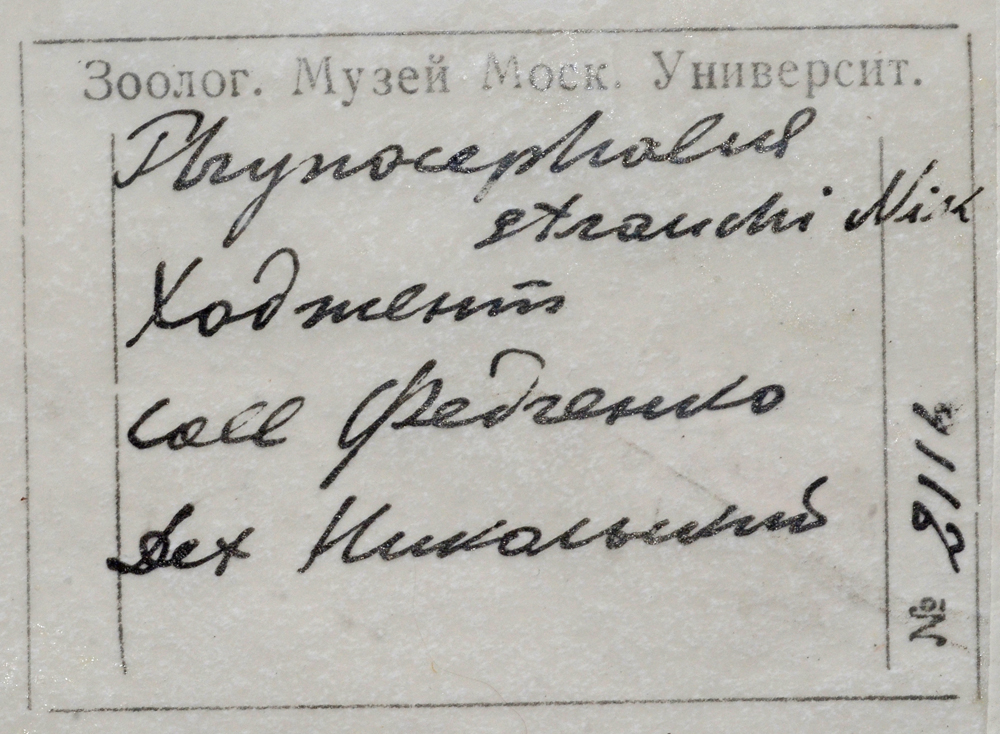 Зоолог. Музей Моск. Университ.
Phrynocephalus
strauchi Nik
Ходжент
Coll Федченко
Det Никольский
№